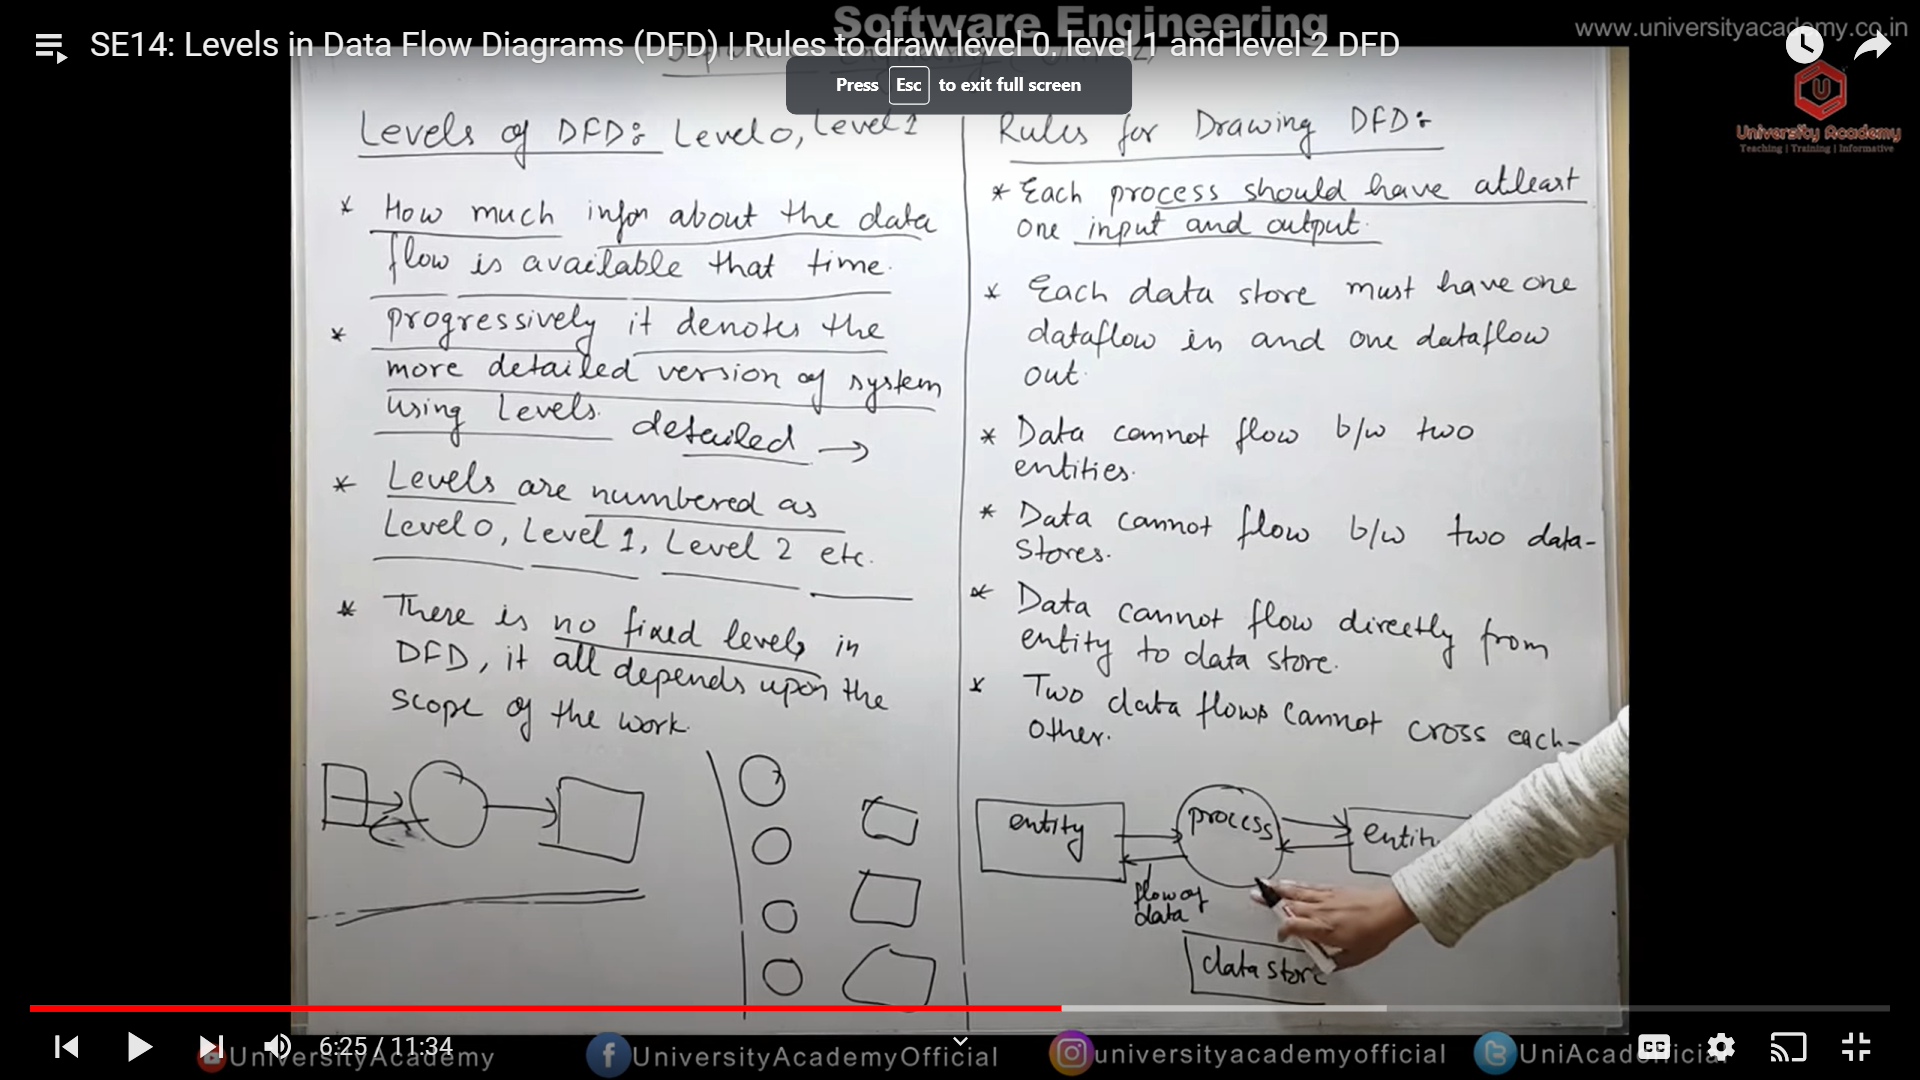 Software Engineering
www.universityacademy.co.in
SE14: Levels in Data Flow Diagrams (DFD) | Rules to draw level 0. level 1 and level 2 DFD
Press Esc to exit full screen
U
University Academy
Teaching | Training | Informative
Levels of DFD: Level 0, Level 1
* How much infor about the data
flow is available that time.
* progressively it denotes the
more detailed version of system
using Levels. detailed →
* Levels are numbered as
Level 0, Level 1, Level 2 etc.
* There is no fixed levels in
DFD, it all depends upon the
scope of the work.
Rules for Drawing DFD:
* Each process should have atleast
one input and output.
* Each data store must have one
dataflow in and one dataflow
out.
* Data cannot flow b/w two
entities.
* Data cannot flow b/w two data-
stores.
* Data cannot flow directly from
entity to data store.
* Two data flows cannot cross each-
other.
entity
process
entity
flow of
data
data store
6:25 / 11:34
UniversityAcademy
UniversityAcademyOfficial
universityacademyofficial
UniAcadofficial
CC